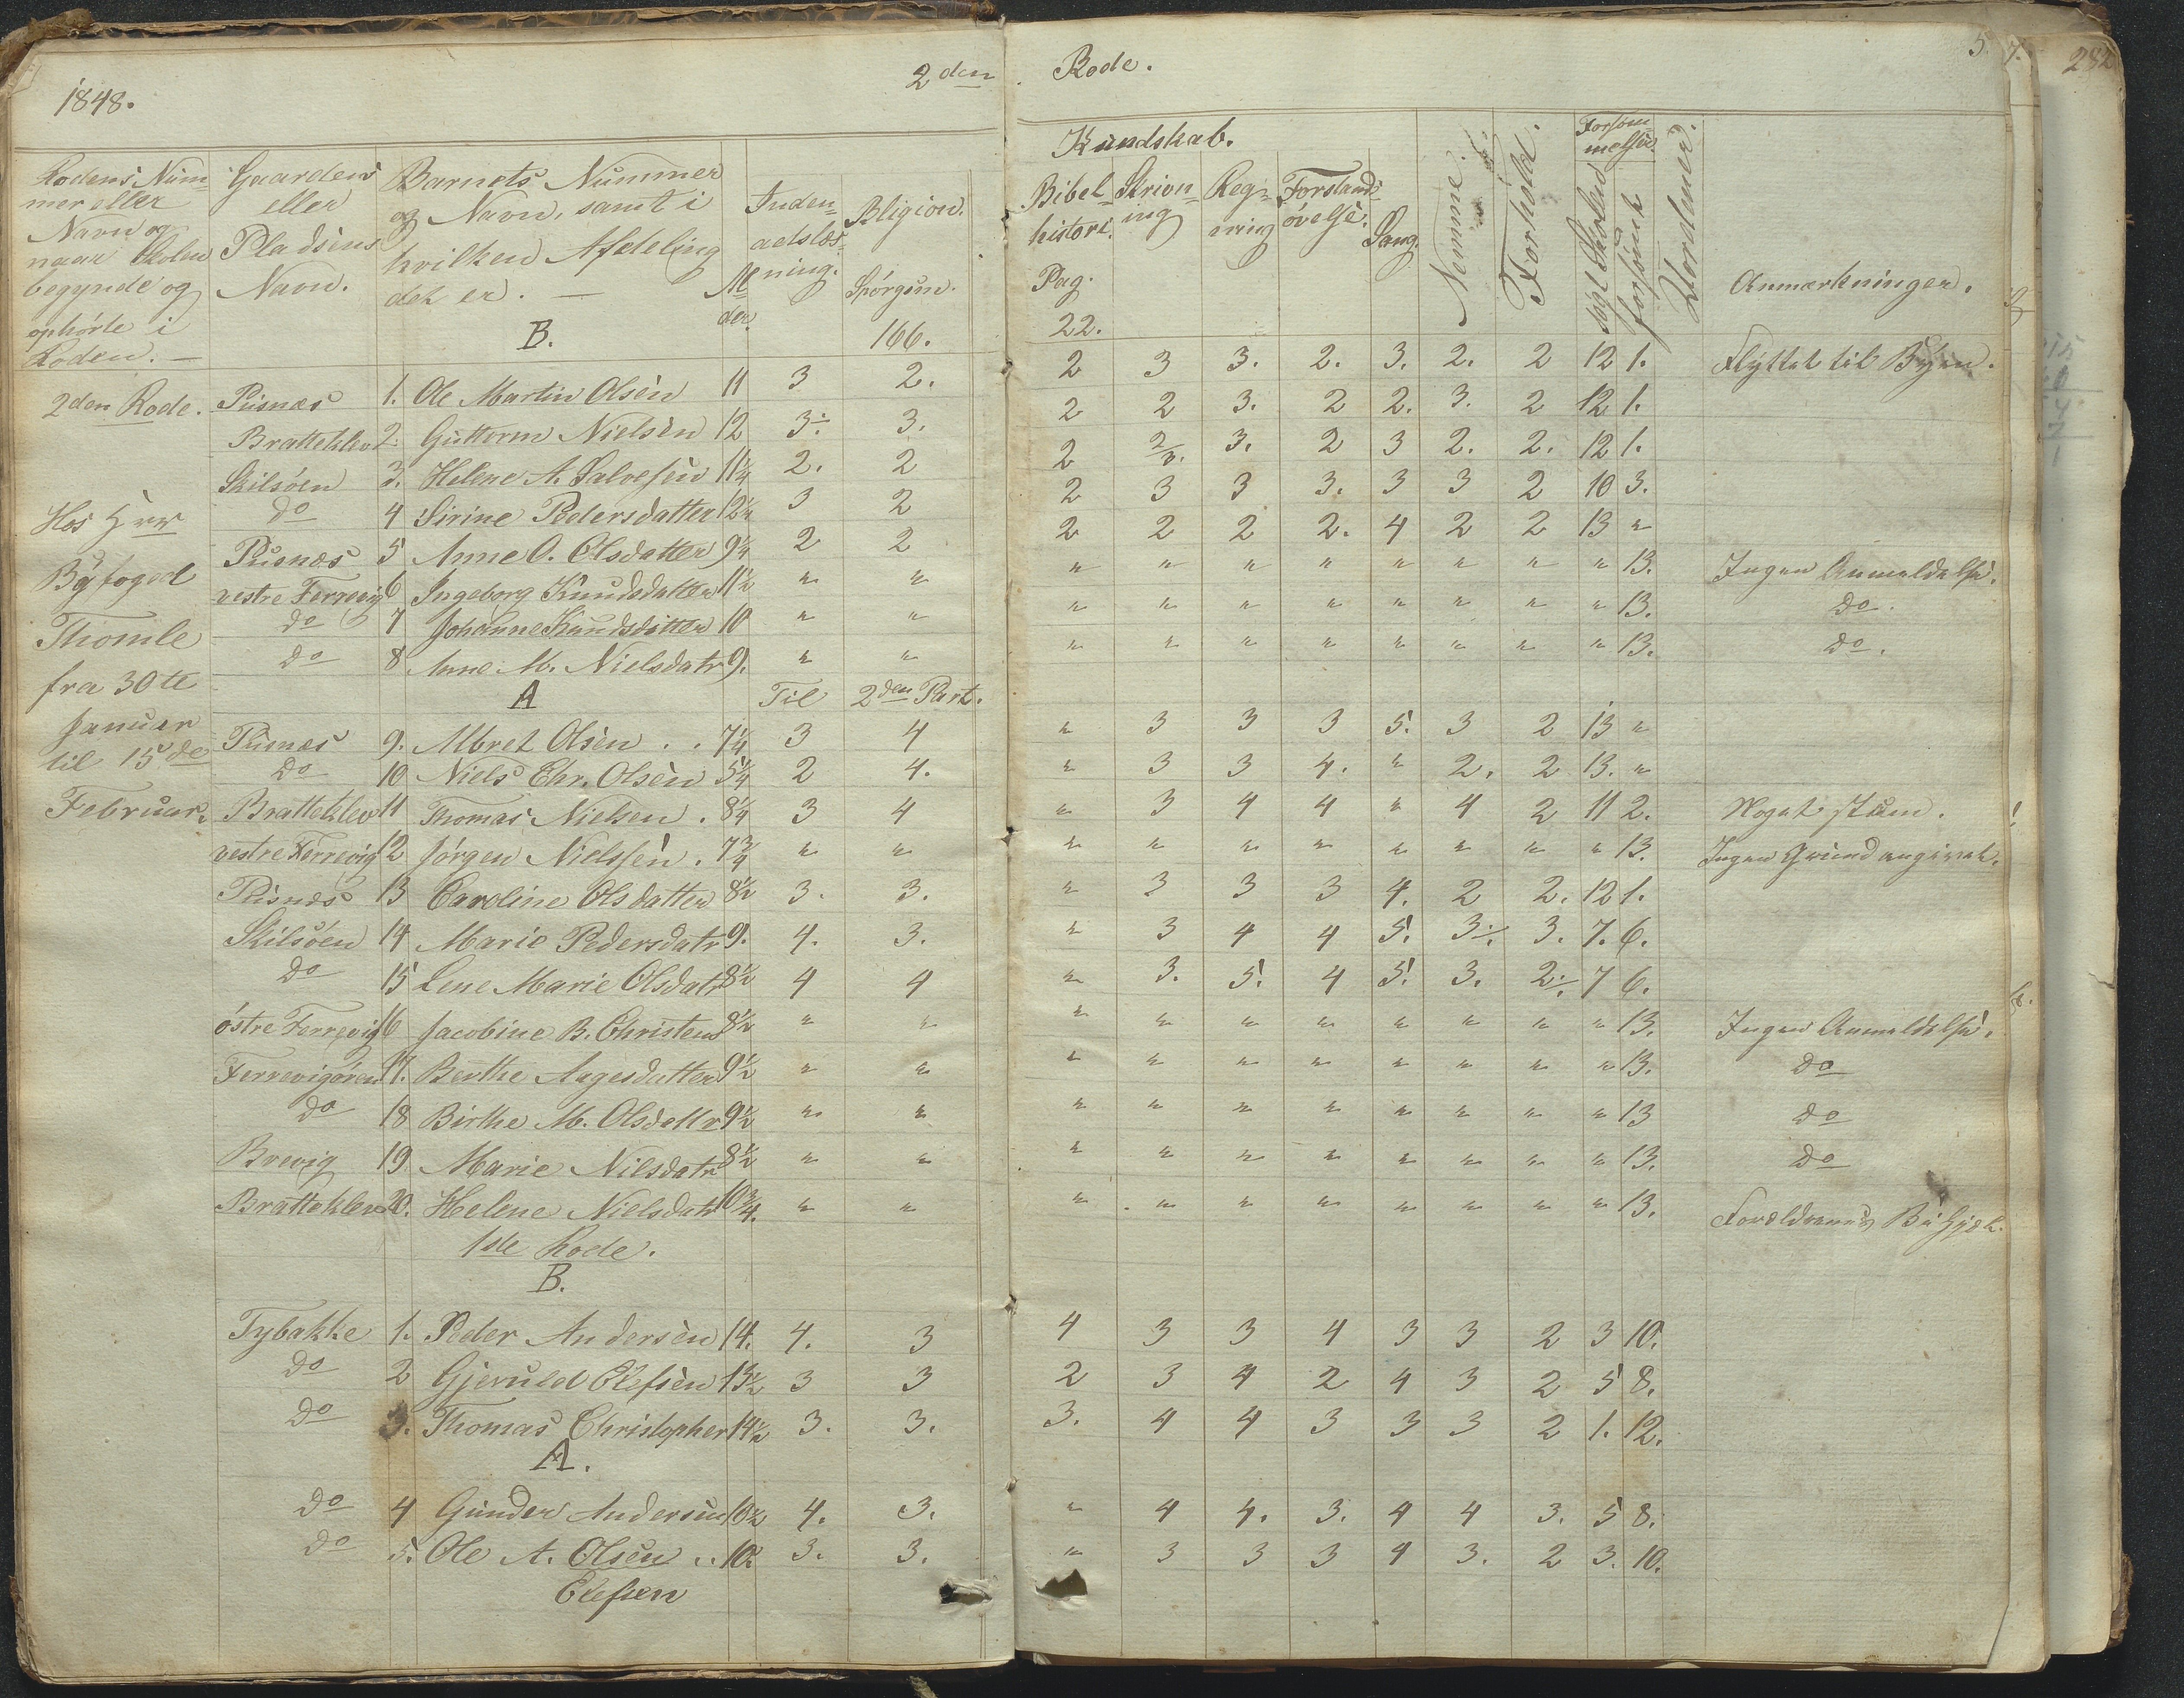 1848. 2den Rode. 5. 7. 282
Kundskab.
Rodens Num-
mer eller
Navn og
naar Skolen
begyndte og
ophørte i
Roden. —
Gaardens
eller
Pladsens
Navn.
Barnets Nummer
og Navn, samt i
hvilken Afdeling
det er. —
B.
Inden-
adslæs-
ning.
Religion.
Spørgsm.
166.
Bibel-
histori.
Pag.
22.
Skrivn-
ing
Reg-
ning
Forstands-
øvelse.
Sang.
Nemme.
Forhold.
Forsøm-
melser.
søgt Skolen
forsømt
Anmærkninger.
2den Rode. Pusnæs 1. Ole Martin Olsen 11 3 2. 2 3 3. 2. 3. 2. 2 12 1. Flyttet til Byen.
Bratteklev 2. Guttorm Nielsen 12 3÷ 3. 2 2 3. 2 2. 3. 2 12 1.
Skilsöen 3. Helene A. Salvesen 11¼ 2. 2 2 2/3. 3. 2 3 2. 2. 12 1.
do 4 Sirine Pedersdatter 12½ 3 2 2 3 3 3. 3 3 2 10 3.
Pusnæs 5 Anne O. Olsdatter 9¼ 2 2 2 2 2 2. 4 2 2 13 "
vestre Færrevig 6 Ingeborg Knudsdatter 11½ " " " " " " " " " " 13. Ingen Anmeldelse.
do 7 Johanne Knudsdatter 10 " " " " " " " " " " 13. do.
do 8 Anne M. Nielsdatr 9. " " " " " " " " " " 13. do.
A Til 2den Part.
Pusnæs 9. Albret Olsen . . 7¼ 3 4 " 3 3 3 5. 3 2 13 "
do 10 Niels Chr. Olsen 5¼ 2 4. " 3 3 4. " 2. 2 13. "
Bratteklev 11 Thomas Nielsen . 8¼ 3 4 " 3 4 4 " 4 2 11 2. Noget stum.
vestre Færrevig 12 Jørgen Nielssen . 7¾ " " " " " " " " " " 13. Ingen Grund angivet.
Pusnæs 13 Caroline Olsdatter 8½ 3. 3. " 3 3 3 4. 2 2. 12 1.
Skilsöen 14 Marie Pedersdatr 9. 4. 3. " 3 4 4 5. 3÷ 3. 7. 6.
do 15 Lene Marie Olsdatr 8½ 4 4 " 3. 5. 4 5. 3. 2÷ 7 6.
østre Færrevig 16 Jacobine B. Christens 8½ " " " " " " " " " " 13. Ingen Anmeldelse.
Færrevigøren 17. Berthe Aagesdatter 9½ " " " " " " " " " " 13. do
do 18 Birthe M. Olsdattr 9½ " " " " " " " " " " 13 do
Brevig 19 Marie Nilsdatr 8½ " " " " " " " " " " 13. do
Bratteklev 20. Helene Nielsdatr 10¾. " " " " " " " " " " 13. Forældrenes
1ste Rode.
B.
Tybakke 1. Peder Andersen 14. 4. 3 4 3 3 4 3 3 2 3 10.
do 2 Gjeruld Elefsen 13½ 3 3 2 3 4 2 4 3 2 5 8.
do 3. Thomas Christopher 14½ 3. 3. 3. 4 4 3 3 3 2 1. 12.
A.
do 4 Gunder Andersen 10½ 4. 3. " 4 4. 3. 4 4 3. 5 8.
do 5. Ole A. Olsen .. 10. 3. 3. " 3 3 3 4 3. 2 3. 10.
Elefsen
Hos Hrr
Byfoged
Thomle
fra 30te
Januar
til 15de
Februar.